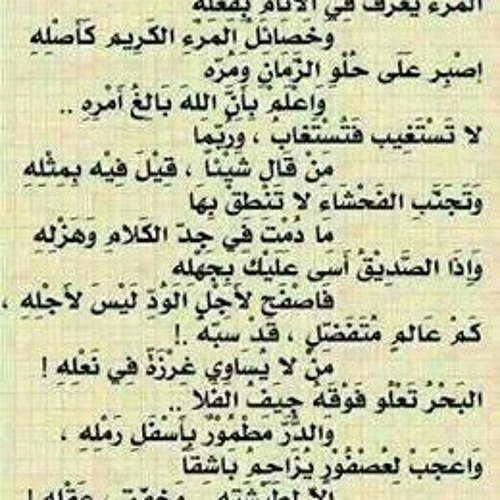 المرء يُعْرَفُ فِي الأَنَامِ بِفِعْلِهِ
وَخَصَائِلُ المَرْءِ الكَرِيم كَأَصْلِهِ
اِصْبِر عَلَى حُلْوِ الزَّمَانِ وَمُرّه
وَاعْلَمْ بِأَنَّ اللهَ بَالغُ أَمْرِهِ ..
لا تَسْتَغِيب فَتُسْتَغابُ ، وَرُبّمَا
مَنْ قَال شَيْئاً ، قِيْلَ فِيْه بِمِثْلِهِ
وَتَجَنَّبِ الفَحْشَاءَ لا تَنْطِقْ بِهَا
مَا دُمْتَ فِي جِدّ الكَلامِ وَهَزْلِهِ
وَإِذَا الصَّدِيْقُ أَسَى عَلَيْكَ بِجَهْلِه
فَاصْفَح لأَجْلِ الوُدِّ لَيْسَ لأَجْلِهِ ،
كَمْ عَالمٍ مُتَفَضِّلٍ ، قَدْ سَبّه .!
مَنْ لا يُسَاوِي غِرْزَةً فِي نَعْلِهِ !
البَحْرُ تَعْلُو فَوْقَهُ جِيَفُ الفَلا ..
والدُّرّ مَطْمُوْرٌ بِأَسْفَلِ رَمْلِهِ ،
وَاعْجَبْ لِعُصْفُوْرٍ يُزَاحِمُ بَاشِقاً
إلاّ لِطَيْشَتِهِ وَخِفّةِ عَقْلِهِ !